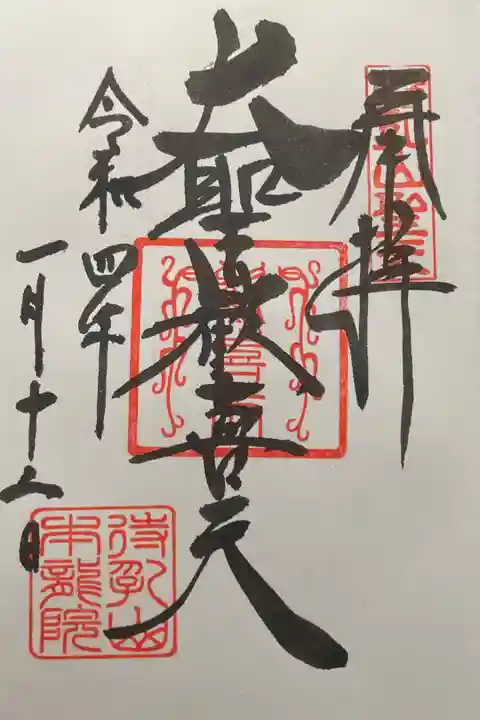 奉拝
大聖歓喜天
令和四年
一月十八日
待乳山
本龍院